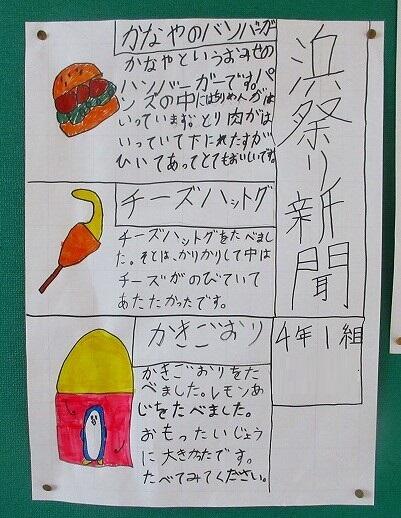 浜祭り新聞
4年1組
かなやのバンバーガ
かなやというおみせの
ハンバーガーです。パ
ンズの中にはちりめんがは
いっています。とり肉がは
いっていて下にれたすが
ひいてあってとてもおいしいです。
チーズハットグ
チーズハットグをたべまし
た。そとは、かりかりして中は
チーズがのびていて
あたたかったです。
かきごおり
かきごおりをた
べました。レモンあ
じをたべました。
おもったいじょう
に大きかったです。
たべてみてください。